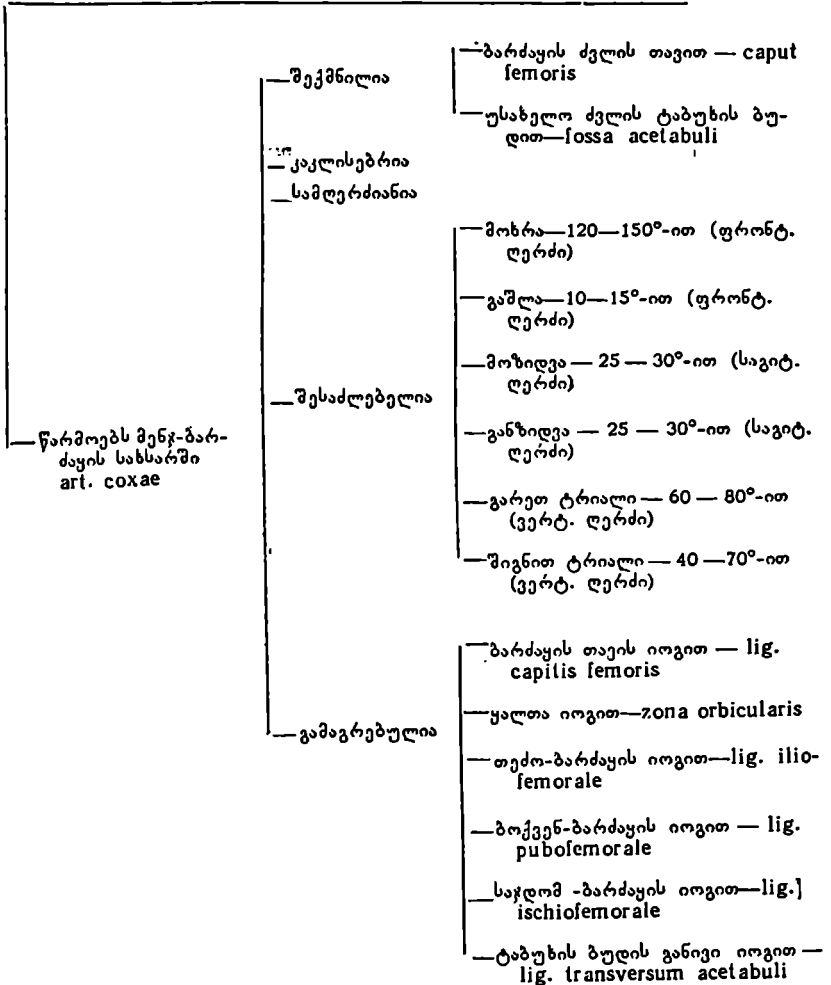 — შექმნილია
— ბარძაყის ძვლის თავით — caput
femoris
— უსახელო ძვლის ტაბუხის ბუ-
დით—fossa acetabuli
— კაკლისებრია
— სამღერძიანია
— შესაძლებელია
— მოხრა—120—150°-ით (ფრონტ.
ღერძი)
— გაშლა—10—15°-ით (ფრონტ.
ღერძი)
— მოზიდვა — 25 — 30°-ით (საგიტ.
ღერძი)
— განზიდვა — 25 — 30°-ით (საგიტ.
ღერძი)
— გარეთ ტრიალი — 60 — 80°-ით
(ვერტ. ღერძი)
— შიგნით ტრიალი — 40 —70°-ით
(ვერტ. ღერძი)
— წარმოებს მენჯ-ბარ-
ძაყის სახსარში
art. coxae
— გამაგრებულია
— ბარძაყის თავის იოგით — lig.
capitis femoris
— ყალთა იოგით—zona orbicularis
— თეძო-ბარძაყის იოგით—lig. ilio-
femorale
— ბოქვენ-ბარძაყის იოგით — lig.
pubofemorale
— საჯდომ -ბარძაყის იოგით—lig.]
ischiofemorale
— ტაბუხის ბუდის განივი იოგით —
lig. transversum acetabuli